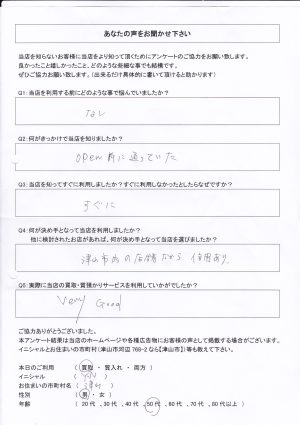 あなたの声をお聞かせ下さい
当店を知らないお客様に当店をより知って頂くためにアンケートのご協力をお願い致します。
良かったこと嬉しかったこと、どのような些細な事でも結構です。
ぜひご協力お願い致します。（出来るだけ具体的に書いて頂けると助かります）
Q1：当店を利用する前にどのような事で悩んでいましたか？
なし
Q2：何がきっかけで当店を知りましたか？
open前に通っていた
Q3：当店を知ってすぐに利用しましたか？すぐに利用しなかったとしたらなぜですか？
すぐに
Q4：何が決め手となって当店を利用しましたか？
他に検討されたお店があれば、何が決め手となって当店を選びましたか？
津山市内の店舗だから 信用あり
Q5：実際に当店の買取・質預かりサービスを利用していかがでしたか？
Very Good
ご協力ありがとうございました。
本アンケート結果は当店のホームページや各種広告物にお客様の声として掲載する場合がございます。
イニシャルとお住まいの市町村（津山市河辺 768-2なら【津山市】）等も教えて下さい。
本日のご利用 （ 買取 ・ 質入れ ・ 両方 ）
イニシャル （ ）
お住まいの市町村名 （ 津山 ）
性別 （ 男 ・ 女 ）
年齢 （ 20代 、30代 、40代 、50代 、60代 、70代 、80代以上 ）